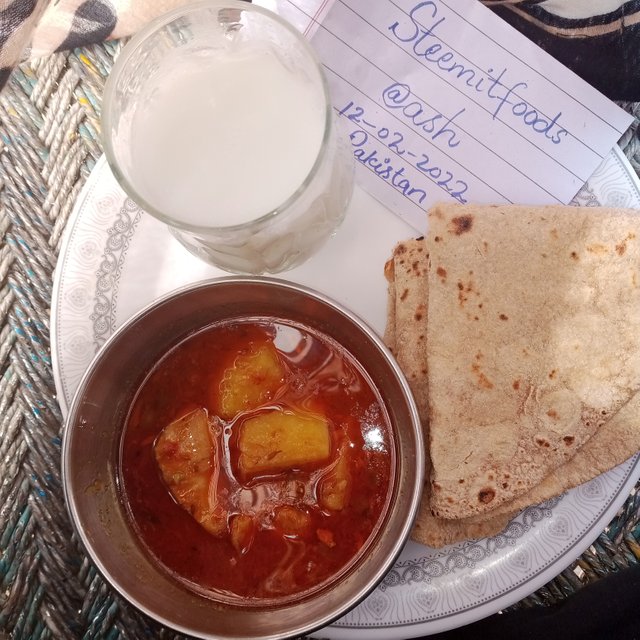 Steemitfoods
@ash
12-02-2022
Pakistan